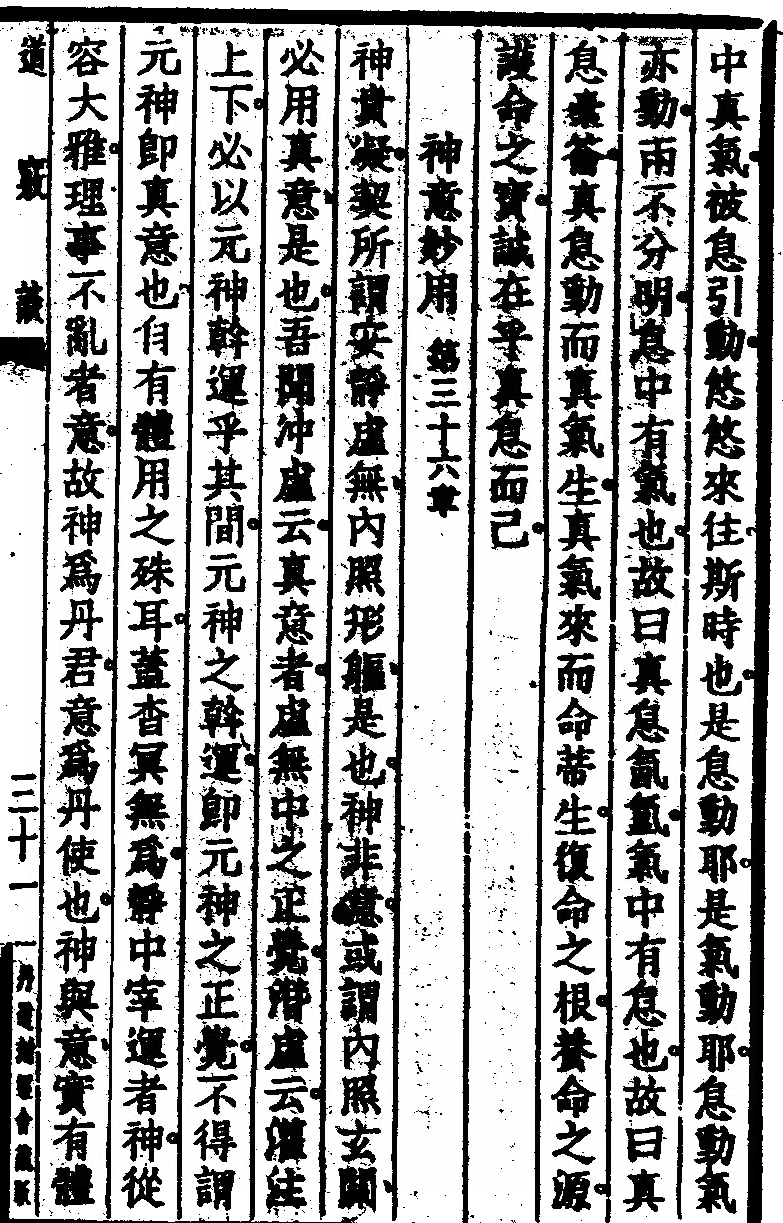 中真氣被息引動悠悠來往斯時也是息動耶是氣動耶息動氣
亦動兩不分明息中有氣也故曰真息氤氳氣中有息也故曰真
息橐籥真息動而真氣生真氣來而命蒂生復命之根養命之源
護命之寶誠在乎真息而已
神意妙用 第三十六章
神貴凝契所謂安靜虛無內照形軀是也神非意或謂內照玄關
必用真意是也吾聞沖虛云真意者虛無中之正覺潛虛云灌注
上下必以元神斡運乎其間元神之斡運卽元神之正覺不得謂
元神卽真意也自有體用之殊耳蓋杳冥無為靜中宰運者神從
容大雅理事不亂者意故神為丹君意為丹使也神與意實有體
道竅談 三十一